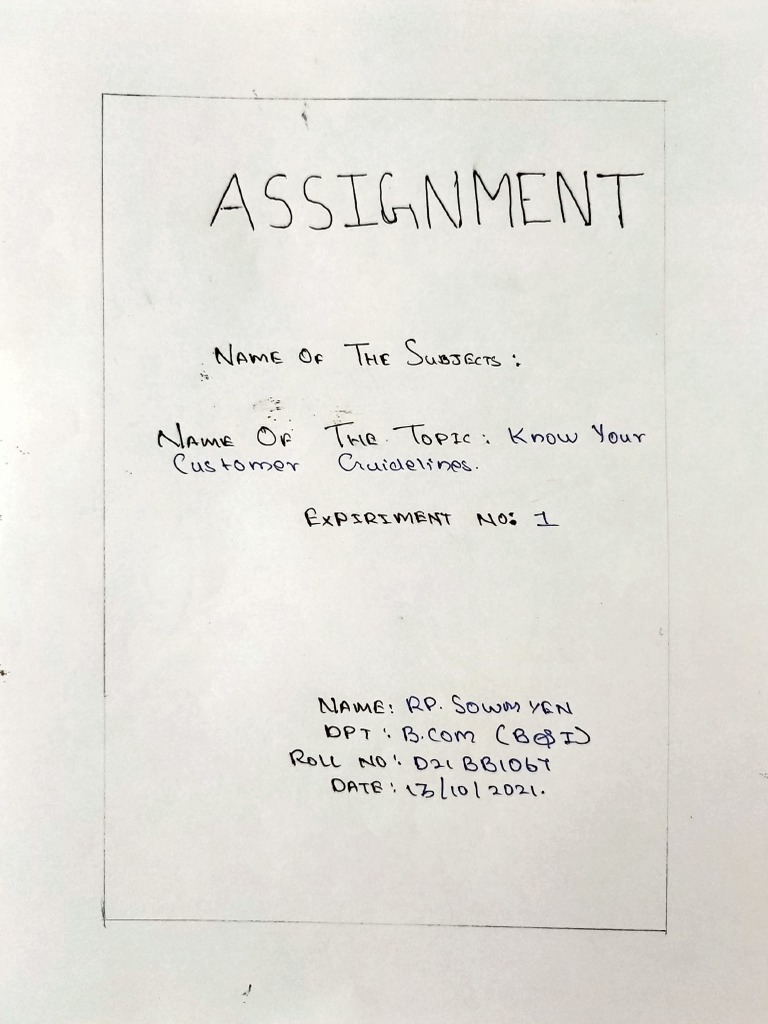 ASSIGNMENT
NAME OF THE SUBJECTS :
NAME OF THE TOPIC : Know Your
Customer Guidelines.
EXPIRIMENT NO: 1
NAME: RP. SOWMYEN
DPT : B.COM (B&I)
ROLL NO : D21BB1067
DATE : 13/10/2021.